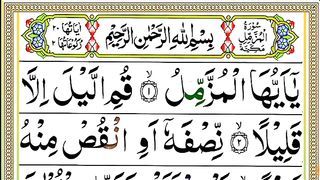 سُورَةُ الْمُزَّمِّلِ مَكِّيَّةٌ
بِسْمِ اللّٰهِ الرَّحْمٰنِ الرَّحِيْمِ
اٰيَاتُهَا ٢٠ رُكُوْعَاتُهَا ٢
يٰۤاَيُّهَا الْمُزَّمِّلُ ۙ﴿١﴾ قُمِ الَّيْلَ اِلَّا
قَلِيْلًا ۙ﴿٢﴾ نِّصْفَهٗۤ اَوِ انْقُصْ مِنْهُ